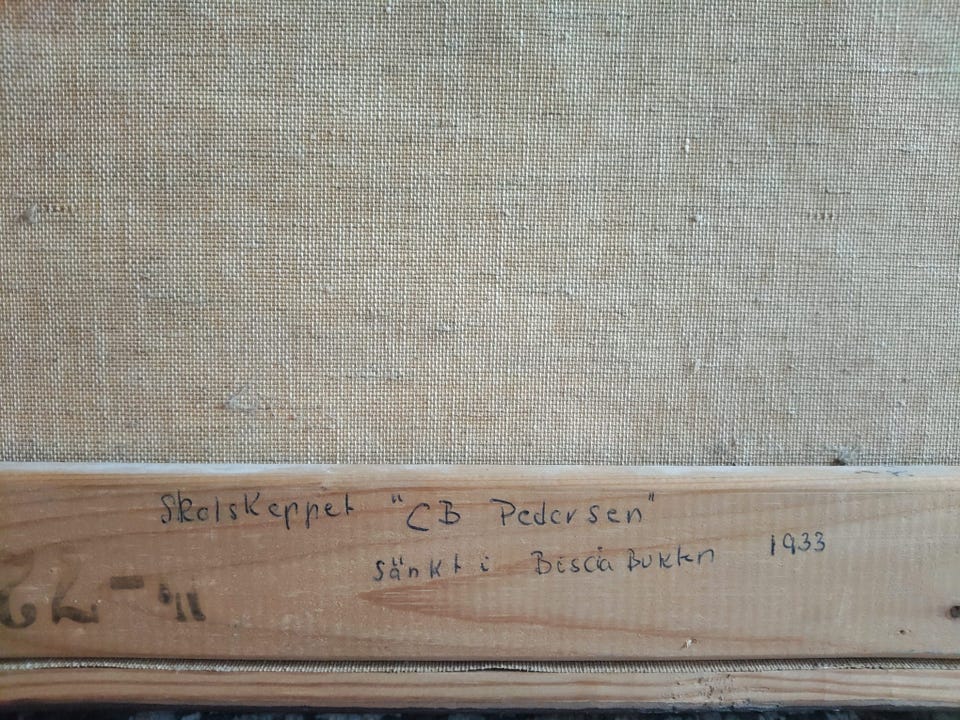 Skolskeppet "CB Pedersen"
sänkt i Biscia Bukten 1933